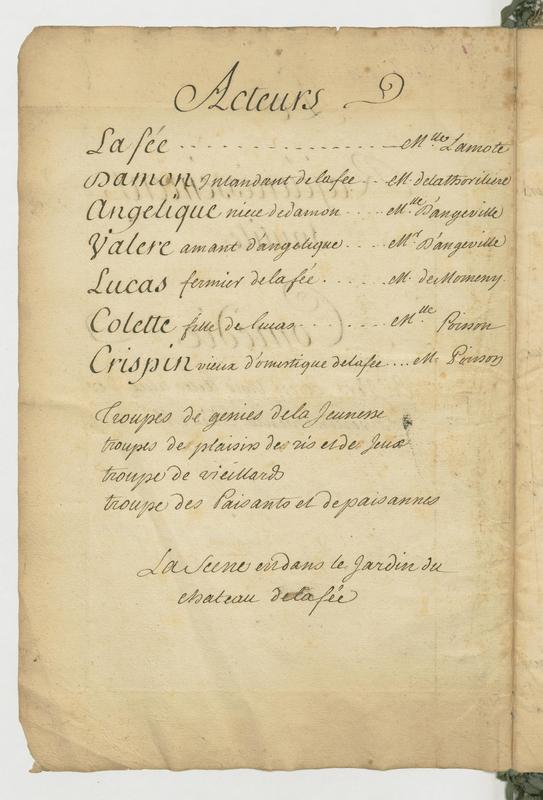 Acteurs
La fée - - - - - - - - - - - - Mlle Lamote
Damon Intandant de la fée . . M. delathoriliere
Angelique niece de damon . . . . Mlle D'angeville
Valere amant d'angelique . . . . Mr D'angeville
Lucas fermier de la fée . . . . . . M. de Momeny
Colette fille de lucas . . . . . . . Mlle Poisson
Crispin vieux d'omestique de la fée . . . . Mr Poisson
Troupes de genies de la Jeunesse
troupes de plaisirs des ris et de Jeux
troupe de vieillards
troupe des Paisants et de paisannes
La Scene est dans le Jardin du
chateau de la fée